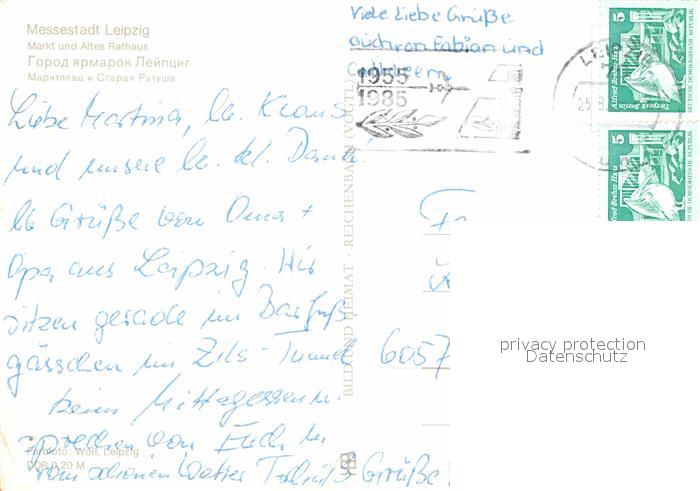 Messestadt Leipzig
Markt und Altes Rathaus
Город ярмарок Лейпциг
Марктплац и Старая Ратуша
Viele Liebe Grüße
auch von Fabian und
1955
1985
5
Alfred-Brehm-Haus
Tierpark Berlin
DEUTSCHE DEMOKRATISCHE REPUBLIK
5
Liebe Martina, lb. Klaus
und unsere lb. kl.
lb. Grüße von Oma +
Opa aus Leipzig. Wir
sitzen gerade im Barfuß
gässchen im Zills-Tunnel
beim Mittagessen u.
sprechen von Euch u.
vom schönen Wetter Tschüß Grüße
6057
BILD UND HEIMAT · REICHENBACH (VOGTL)
Farbfoto: Wolf, Leipzig
DDR 0,20 M
privacy protection
Datenschutz